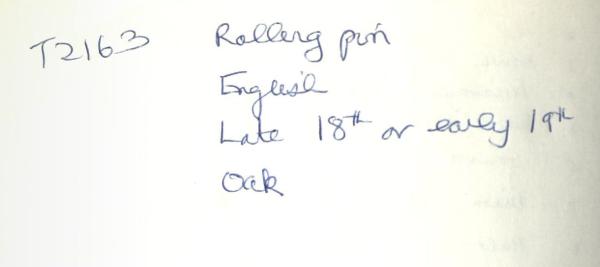 T2163 Rolling pin
English
Late 18th or early 19th
Oak